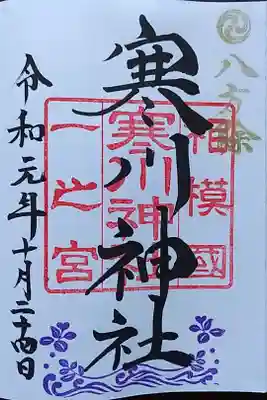 八方除
寒川神社
相模國
寒川神社
一之宮
令和元年十月二十四日